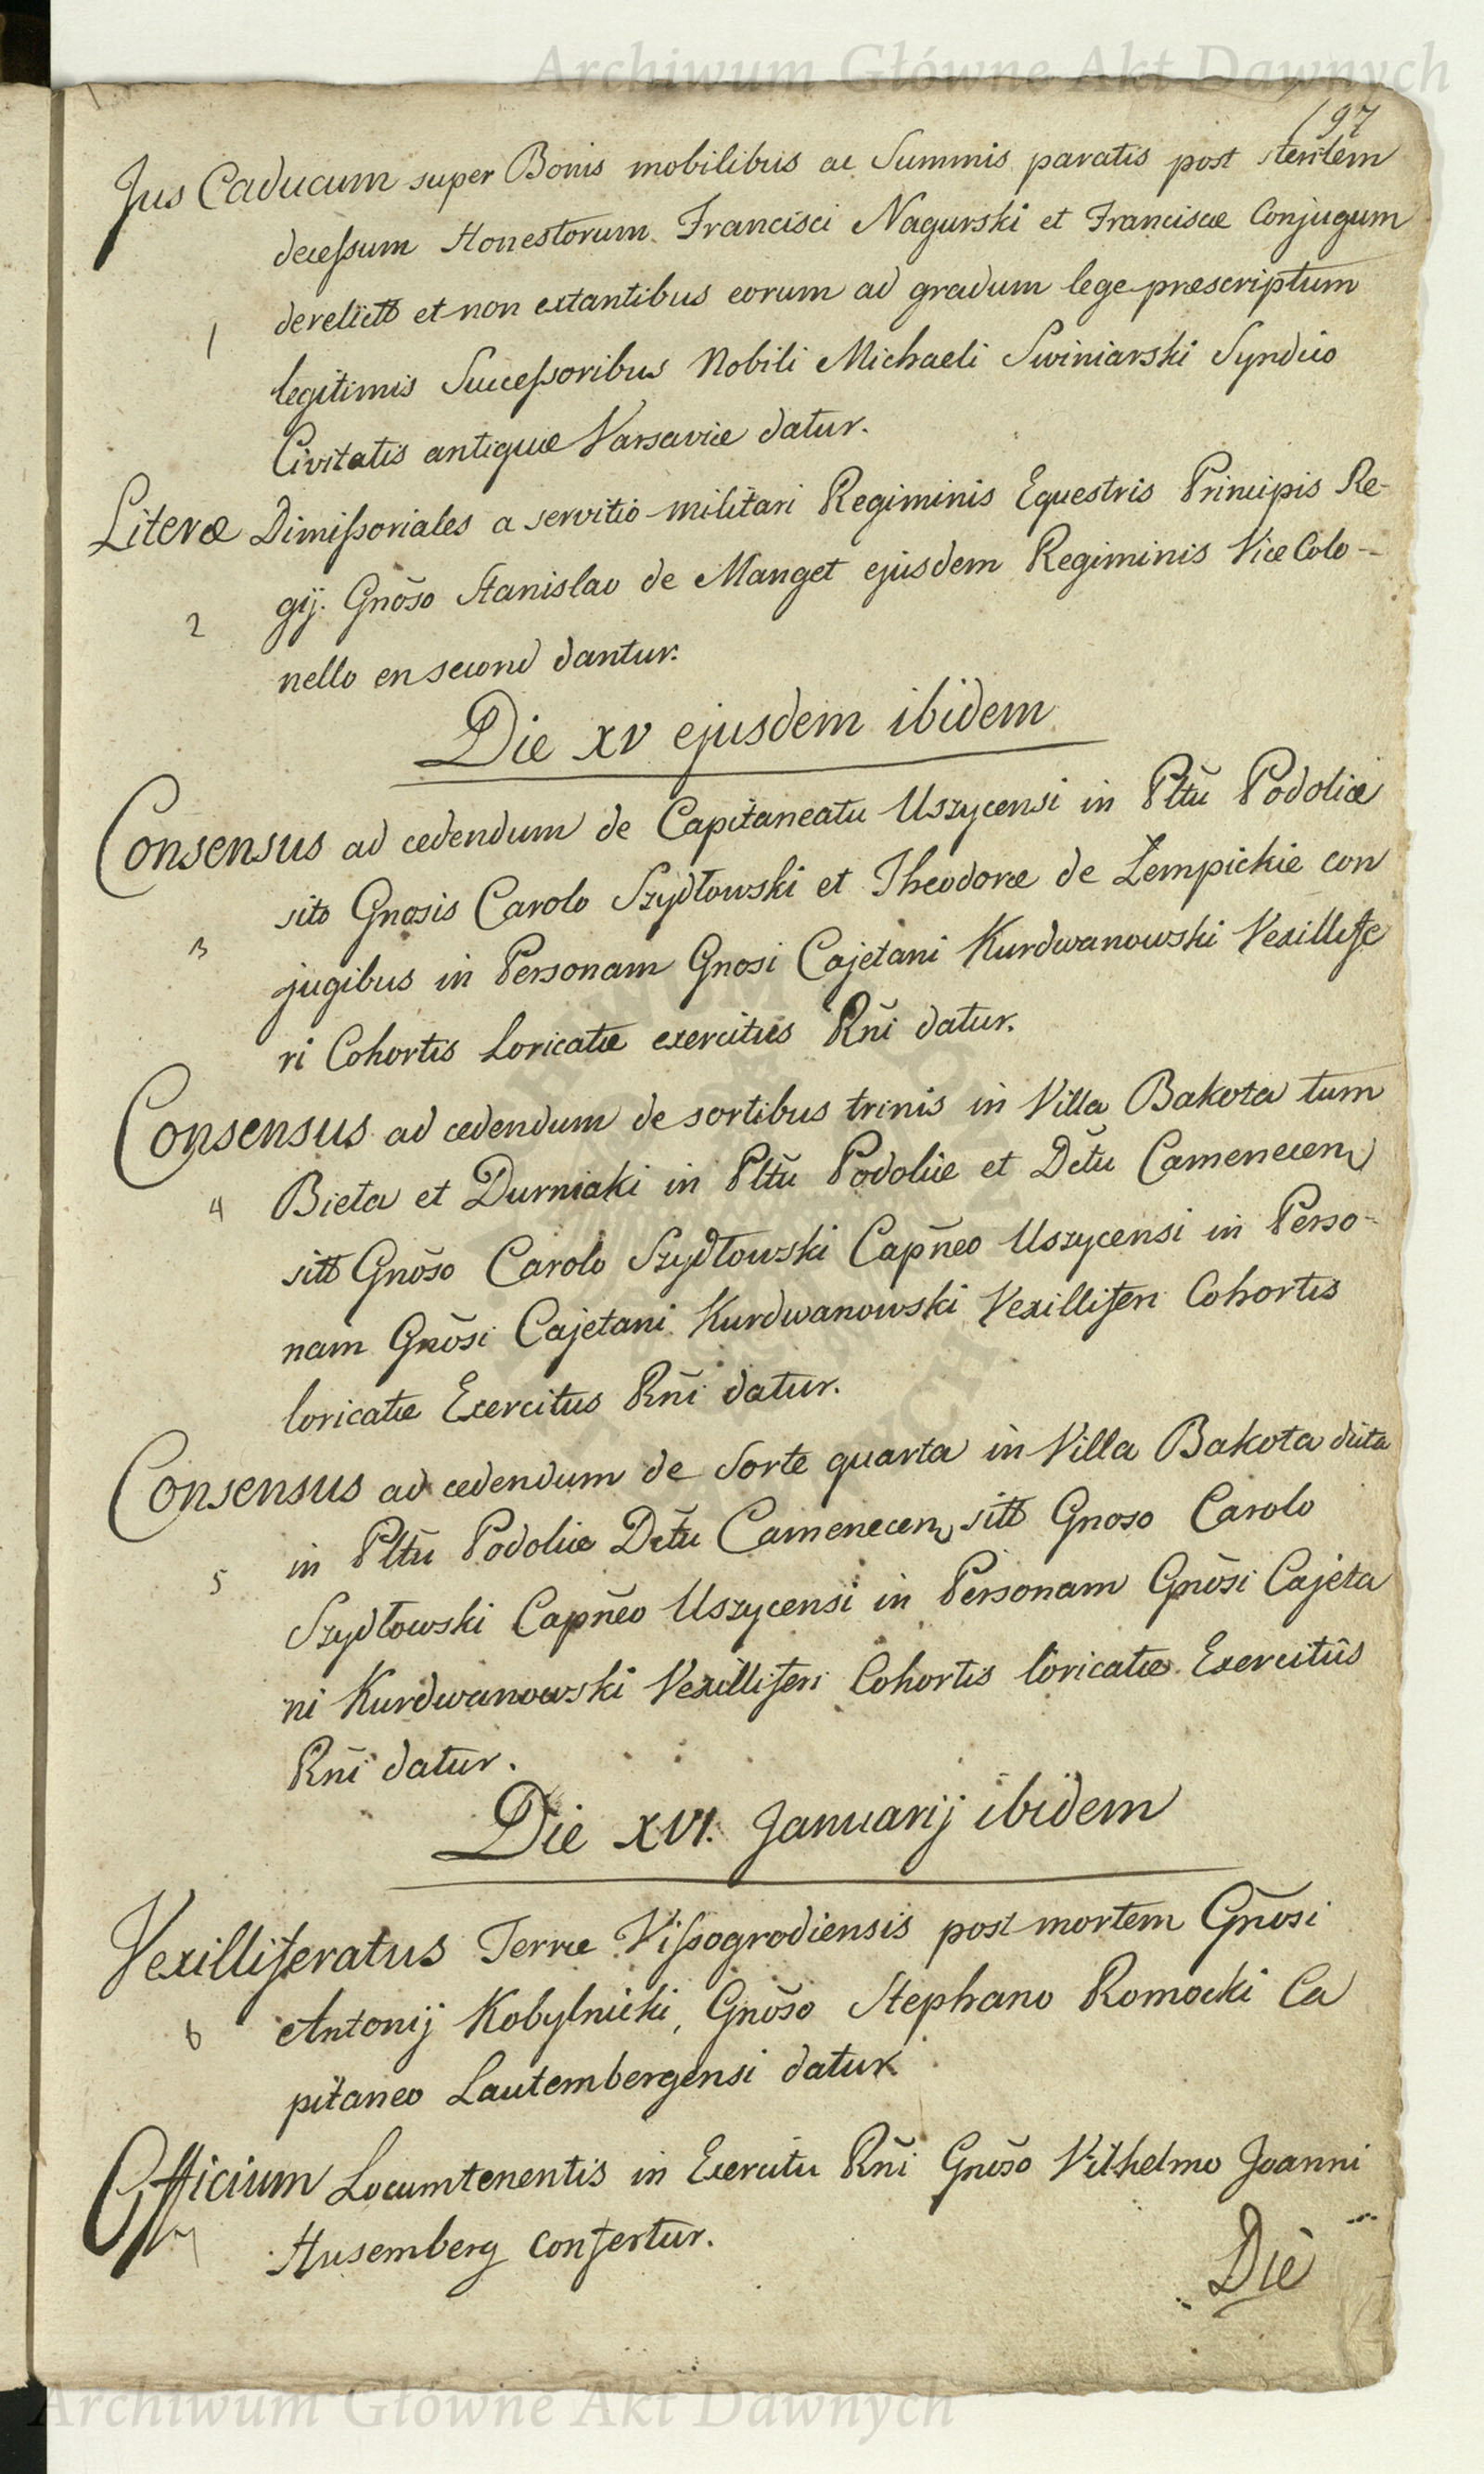 Archiwum Główne Akt Dawnych
197
Jus Caducum super Bonis mobilibus ac Summis paratis post sterilem
decessum Honestorum Francisci Nagurski et Franciscæ Conjugum
derelictt et non extantibus eorum ad gradum lege præscriptum
1
legitimis Successoribus Nobili Michaeli Swiniarski Syndico
Civitatis antiquæ Varsaviæ datur.
Literæ Dimissoriales a servitio militari Regiminis Equestris Principis Re-
2
gij. Gnõso Stanislao de Manget ejusdem Regiminis Vice Colo-
nello en second dantur.
Die XV ejusdem ibidem
Consensus ad cedendum de Capitaneatu Uszycensi in Pltũ Podoliæ
sito Gnosis Carolo Szydłowski et Theodoræ de Łempickie con
3
jugibus in Personam Gnosi Cajetani Kurdwanowski Vexillife
ri Cohortis Loricatæ exercitus Rñi datur.
Consensus ad cedendum de sortibus trinis in Villa Bakota tum
4
Bieta et Durniaki in Pltũ Podoliæ et Dctũ Camenecen
sitt Gnõso Carolo Szydłowski Capñeo Uszycensi in Perso-
nam Gnõsi Cajetani Kurdwanowski Vexilliferi Cohortis
loricatæ Exercitus Rñi datur.
Consensus ad cedendum de Sorte quarta in Villa Bakota dicta
5
in Pltũ Podoliæ Dctũ Camenecen sitt Gnoso Carolo
Szydłowski Capñeo Uszycensi in Personam Gnõsi Cajeta
ni Kurdwanowski Vexilliferi Cohortis loricatæ Exercitûs
Rñi datur.
Die XVI. Januarij ibidem
Vexilliferatus Terræ Vissogrodiensis post mortem Gnõsi
6
Antonij Kobylnicki, Gnõso Stephano Romocki Ca
pitaneo Lautembergensi datur.
Officium Locumtenentis in Exercitu Rñi Gnõso Vilhelmo Joanni
7
Husemberg confertur.
Die
Archiwum Główne Akt Dawnych